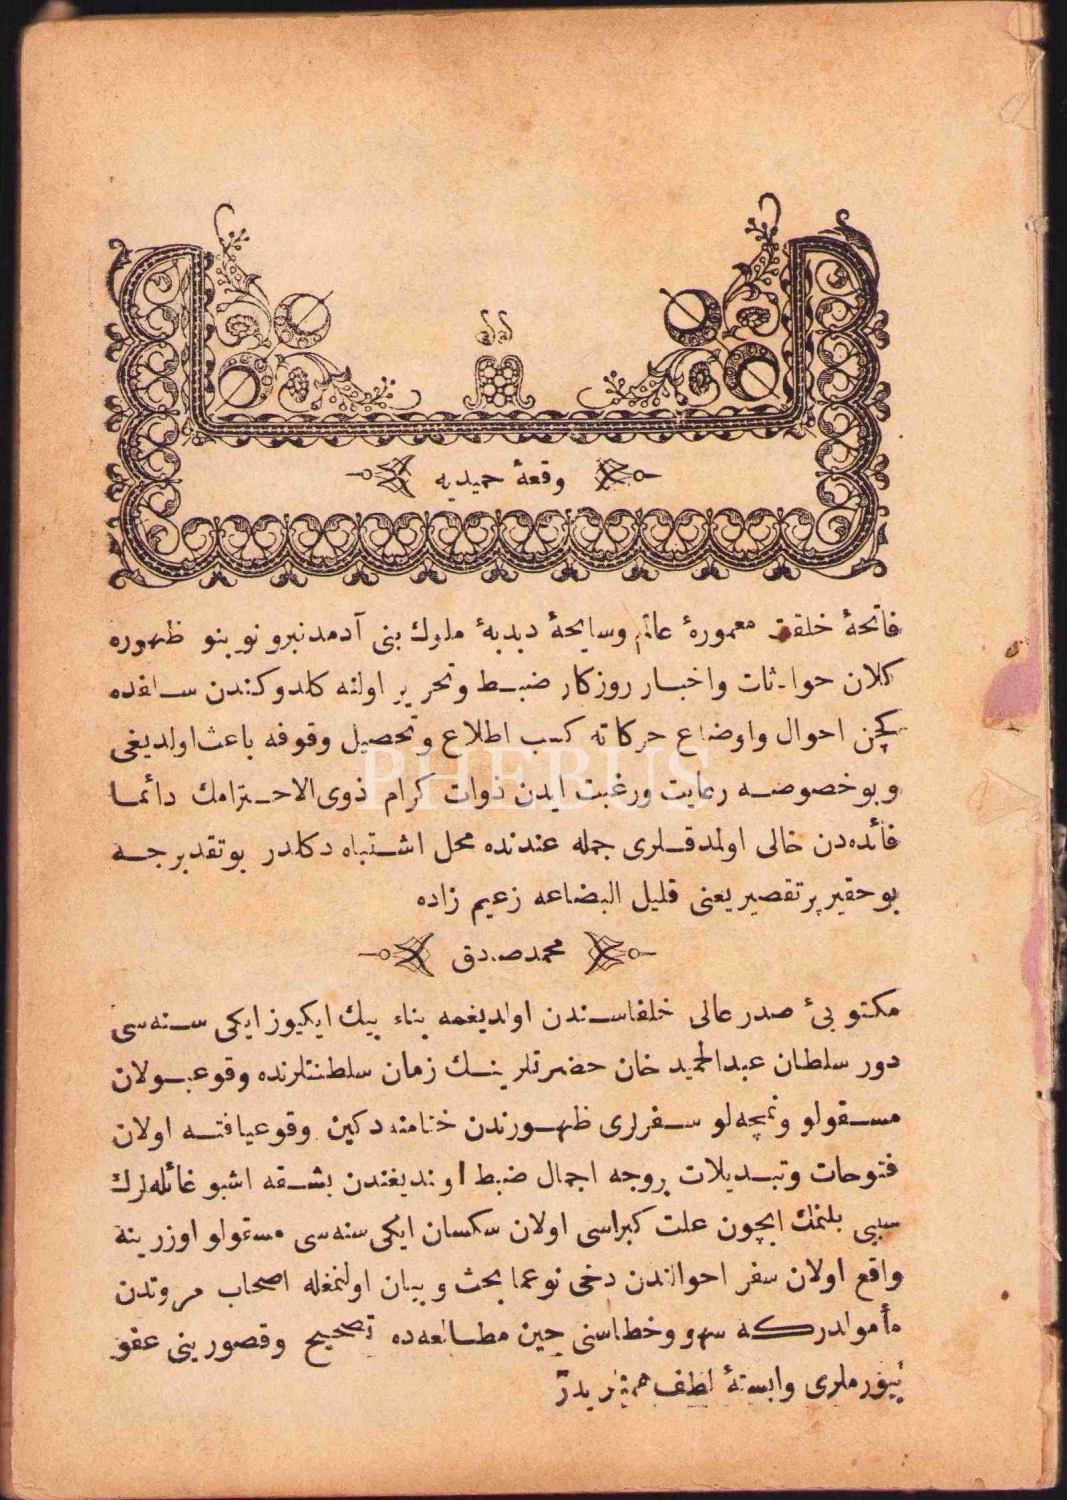 وقعهٔ حمیدیه
فاتحهٔ خلقت معمورهٔ عالم وسایحهٔ دبدبهٔ ملوك بنی آدمدنبرو نوبنو ظهوره
كلان حوادثات واخبار روزكار ضبط وتحریر اولنه كلدوكندن سالفده
كچن احوال واوضاع حركاته كسب اطلاع وتحصیل وقوفه باعث اولدیغی
وبوخصوصه رعایت ورغبت ایدن ذوات كرام ذوی الاحترامك دائما
فائده‌دن خالی اولمدقلری جمله عندنده محل اشتباه دكلدر بوتقدیرجه
بوحقیر پرتقصیر یعنی قلیل البضاعه زعیم زاده
محمد صادق
مكتوبیٔ صدر عالی خلفاسندن اولدیغمه بناء بیك ایكیوز ایكی سنه‌سی
دور سلطان عبدالحمید خان حضرتلرینك زمان سلطنتلرنده وقوعبولان
مسقولو ونمچه‌لو سفرلری ظهورندن ختامنه دكین وقوعیافته اولان
فتوحات وتبدیلات بروجه اجمال ضبط اوندیغندن بشقه اشبو غائله‌لرك
سببی بلنمك ایچون علت كبراسی اولان سكسان ایكی سنه‌سی مسقولو اوزرینه
واقع اولان سفر احوالندن دخی نوعما بحث وبیان اولنمغله اصحاب مروتدن
مأمولدركه سهو وخطاسنی حین مطالعه‌ده تصحیح وقصورینی عفو
بیورملری وابستهٔ لطف همتلریدر
PHEBUS